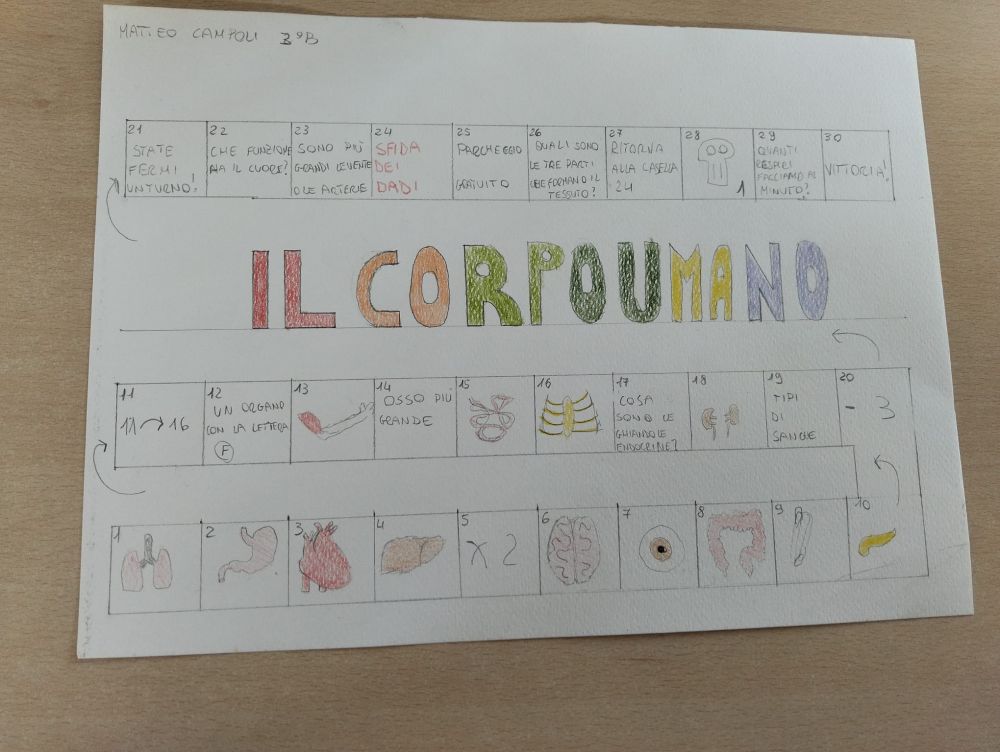 MATTEO CAMPOLI 3°B
21
STATE
FERMI
UN TURNO!
22
CHE FUNZIONE
HA IL CUORE?
23
SONO PIÙ
GRANDI LE VENE
O LE ARTERIE
24
SFIDA
DEI
DADI
25
PARCHEGGIO
GRATUITO
26
QUALI SONO
LE TRE PARTI
CHE FORMANO IL
TESSUTO?
27
RITORNA
ALLA CASELLA
24
28
1
29
QUANTI
RESPIRI
FACCIAMO AL
MINUTO?
30
VITTORIA!
IL CORPO UMANO
11
11 → 16
12
UN ORGANO
CON LA LETTERA
F
13
14
OSSO PIÙ
GRANDE
15
16
17
COSA
SONO LE
GHIANDOLE
ENDOCRINE?
18
19
TIPI
DI
SANGUE
20
- 3
1
2
3
4
5
X 2
6
7
8
9
10